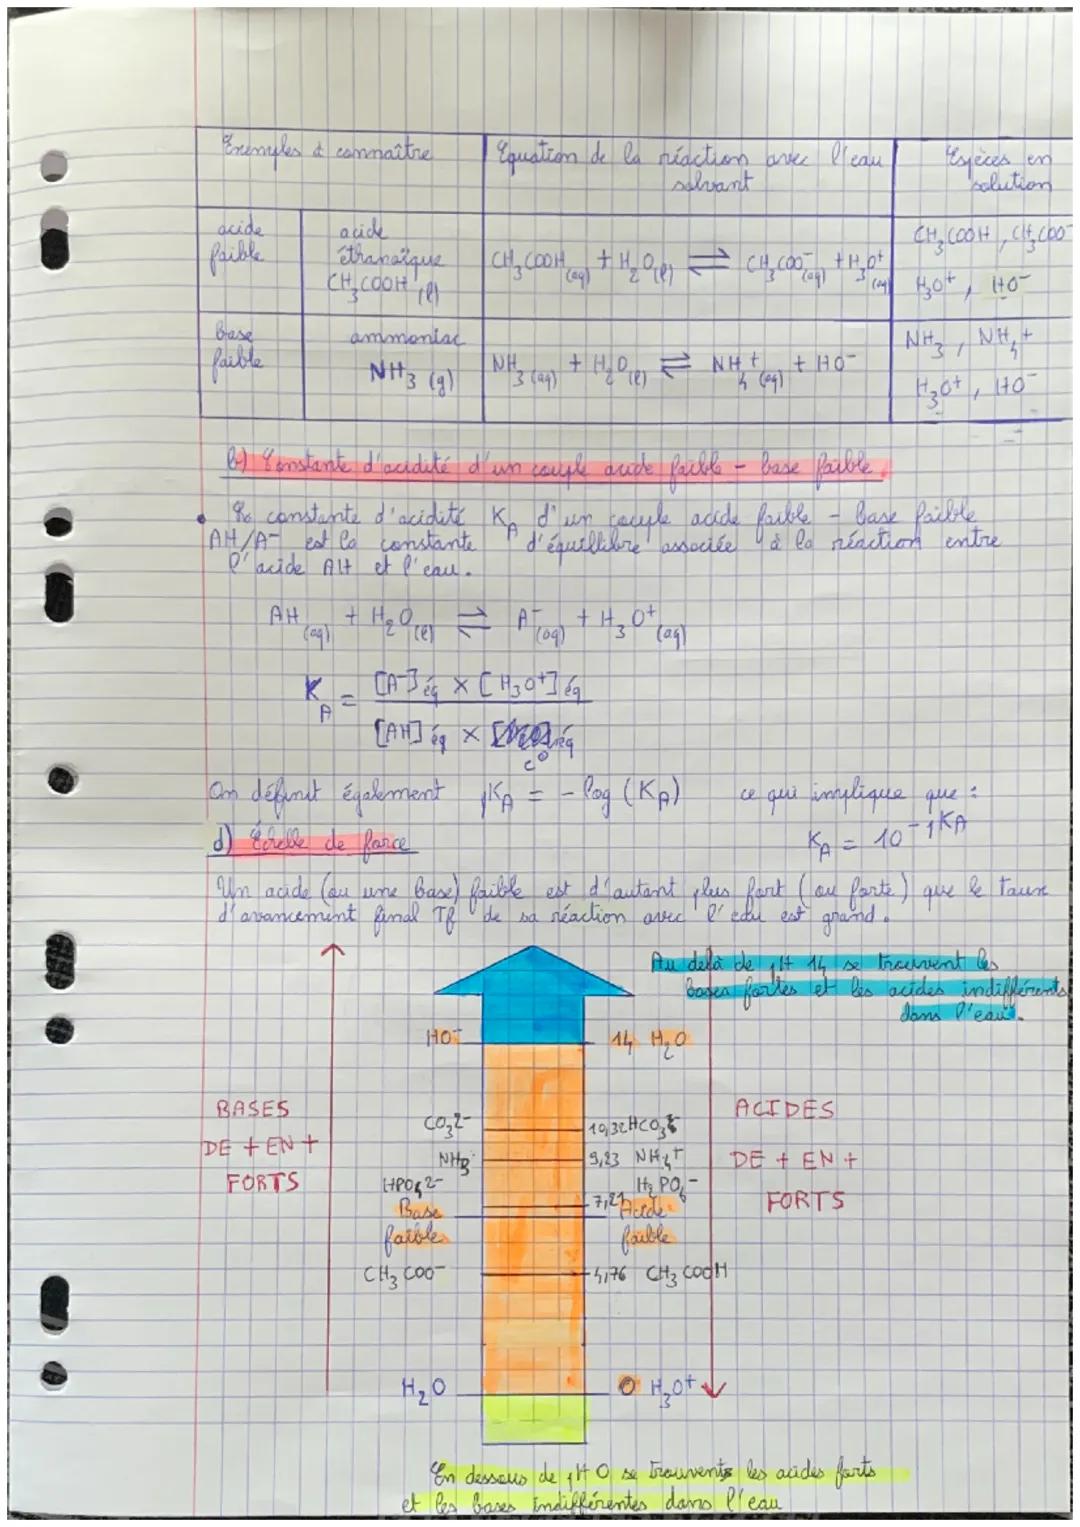 Exemples à connaître
Equation de la réaction avec l'eau
solvant
Espèces en
solution
acide
faible
acide
éthanoïque
CH₃COOH (l)
CH₃COOH (aq) + H₂O (l) ⇌ CH₃COO⁻ (aq) + H₃O⁺ (aq)
CH₃COOH, CH₃COO⁻
H₃O⁺, HO⁻
Base
faible
ammoniac
NH₃ (g)
NH₃ (aq) + H₂O (l) ⇌ NH₄⁺ (aq) + HO⁻
NH₃, NH₄⁺
H₃O⁺, HO⁻
b) Constante d'acidité d'un couple acide faible - base faible
• La constante d'acidité K_A d'un couple acide faible - Base faible
AH/A⁻ est la constante d'équilibre associée à la réaction entre
l'acide AH et l'eau.
AH (aq) + H₂O (l) ⇌ A⁻ (aq) + H₃O⁺ (aq)
K_A = [A⁻]éq × [H₃O⁺]éq
[AH]éq × c°
On définit également pK_A = - log (K_A) ce qui implique que :
K_A = 10^-pKA
d) Échelle de force
Un acide (ou une base) faible est d'autant plus fort (ou forte) que le taux
d'avancement final Tf de sa réaction avec l'eau est grand.
Au delà de pH 14 se trouvent les
bases fortes et les acides indifférents
dans l'eau.
HO⁻ 14 H₂O
BASES
DE + EN +
FORTS
ACIDES
DE + EN +
FORTS
CO₃²⁻ 10,32 HCO₃⁻
NH₃ 9,23 NH₄⁺
HPO₄²⁻ 7,21 H₂PO₄⁻
Base
faible
Acide
faible
CH₃COO⁻ 4,76 CH₃COOH
H₂O 0 H₃O⁺
En dessous de pH 0 se trouvents les acides forts
et les bases indifférentes dans l'eau